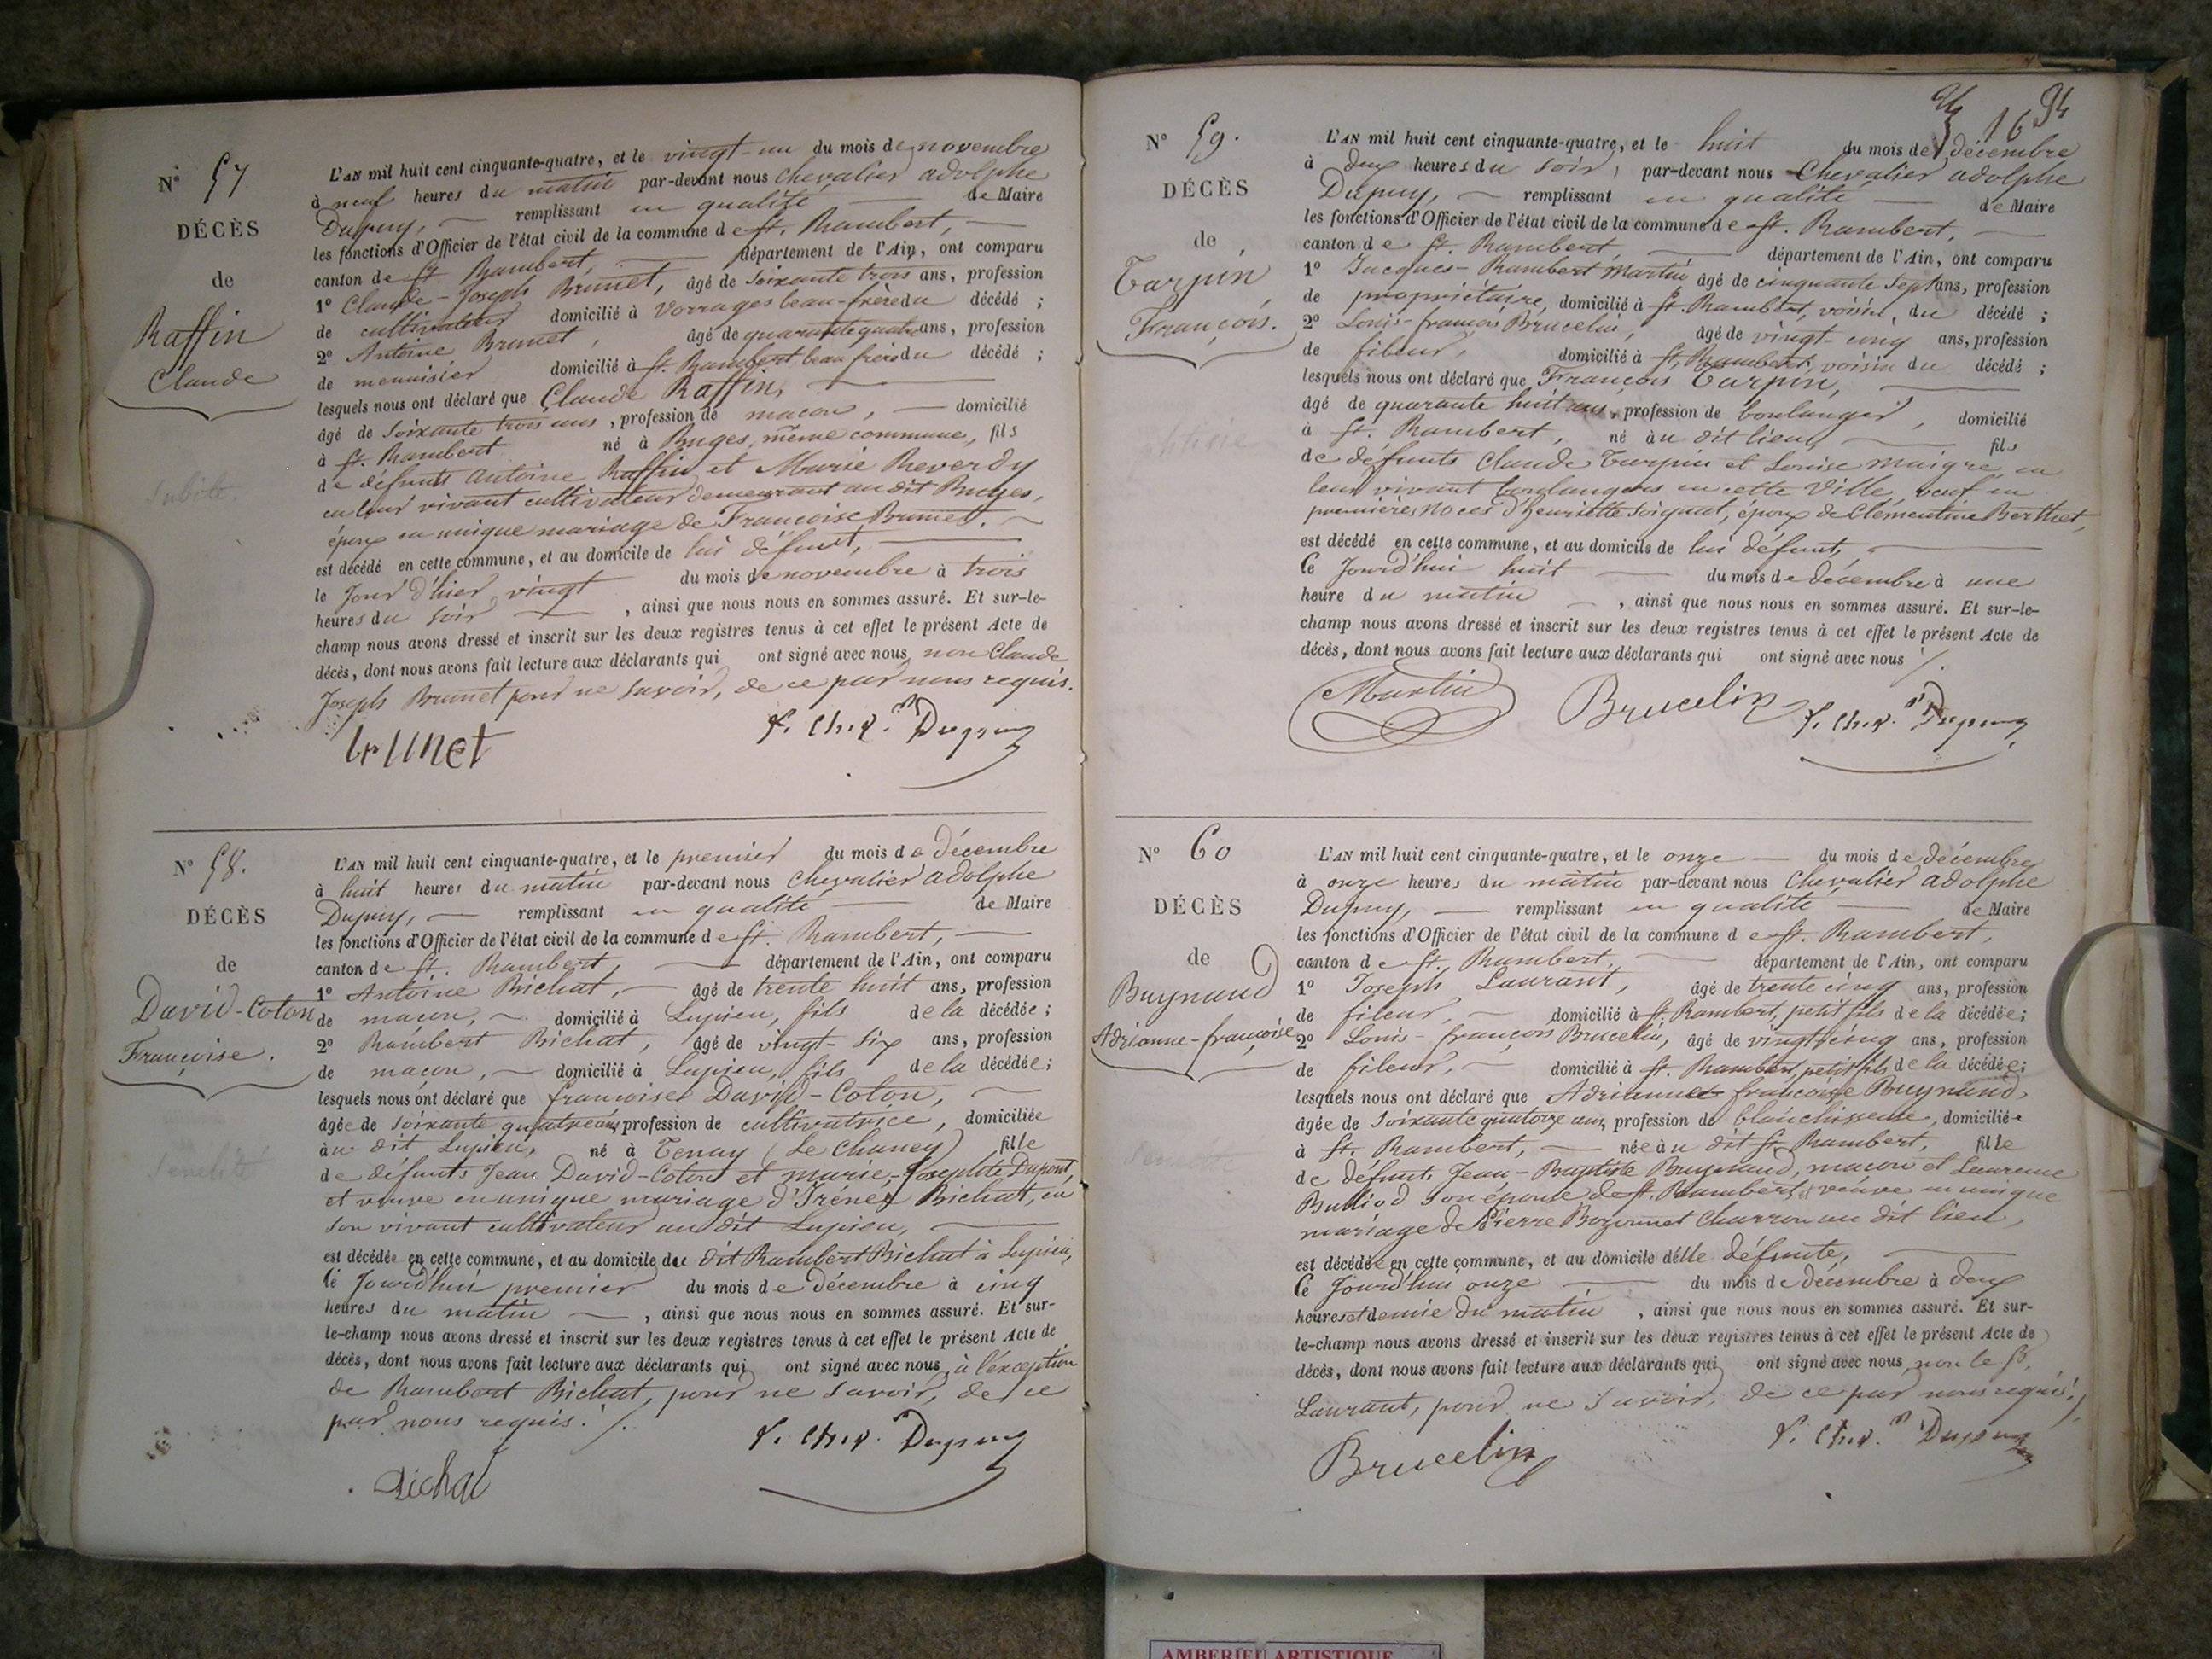 N° 57
DÉCÈS
de
Raffin
Claude
Subite.
L'AN mil huit cent cinquante-quatre, et le vingt-un du mois de novembre
à neuf heures du matin par-devant nous Chevalier adolphe
Dupuy, remplissant en qualité de Maire
les fonctions d'Officier de l'état civil de la commune de St. Rambert,
canton de St. Rambert, département de l'Ain, ont comparu
1° Claude-Joseph Brunet, âgé de Soixante trois ans, profession
de cultivateur domicilié à Vorrages beau-frère du décédé ;
2° Antoine Brunet, âgé de quarante quatre ans, profession
de menuisier domicilié à St. Rambert beau frère du décédé ;
lesquels nous ont déclaré que Claude Raffin,
âgé de Soixante trois ans, profession de macon, domicilié
à St. Rambert né à Buges, même commune, fils
de défunts Antoine Raffin et Marie Reverdy
en leur vivant cultivateur demeurant au dit Buges,
époux en unique mariage de Françoise Brunet.
est décédé en cette commune, et au domicile de lui défunt,
le Jour d'hier vingt du mois de novembre à trois
heures du soir, ainsi que nous nous en sommes assuré. Et sur-le-
champ nous avons dressé et inscrit sur les deux registres tenus à cet effet le présent Acte de
décès, dont nous avons fait lecture aux déclarants qui ont signé avec nous, non Claude
Joseph Brunet pour ne savoir, de ce par nous requis.
brunet
Dupuy
N° 58.
DÉCÈS
de
David-Coton
Françoise.
Senelité
L'AN mil huit cent cinquante-quatre, et le premier du mois de décembre
à huit heures du matin par-devant nous Chevalier adolphe
Dupuy, remplissant en qualité de Maire
les fonctions d'Officier de l'état civil de la commune de St. Rambert,
canton de St. Rambert, département de l'Ain, ont comparu
1° Antoine Bichat, âgé de trente huit ans, profession
de macon, domicilié à Lupieu, fils de la décédée ;
2° Rambert Bichat, âgé de vingt-six ans, profession
de macon, domicilié à Lupieu, fils de la décédée ;
lesquels nous ont déclaré que françoise David-Coton,
âgée de soixante quatre ans, profession de cultivatrice, domiciliée
au dit Lupieu, né à Tenay (Le Chaney) fille
de défunts Jean David-Coton et marie-Josephte Dupont,
et veuve en unique mariage d'Irénée Bichat, en
son vivant cultivateur au dit Lupieu,
est décédée en cette commune, et au domicile du dit Rambert Bichat à Lupieu,
le Jourd'hui premier du mois de décembre à cinq
heures du matin, ainsi que nous nous en sommes assuré. Et sur-
le-champ nous avons dressé et inscrit sur les deux registres tenus à cet effet le présent Acte de
décès, dont nous avons fait lecture aux déclarants qui ont signé avec nous, à l'exception
de Rambert Bichat, pour ne savoir, de ce
par nous requis. /.
Bichat
Dupuy
16 94
N° 59.
DÉCÈS
de
Tarpin
François.
L'AN mil huit cent cinquante-quatre, et le huit du mois de décembre
à deux heures du soir, par-devant nous Chevalier adolphe
Dupuy, remplissant en qualité de Maire
les fonctions d'Officier de l'état civil de la commune de St. Rambert,
canton de St. Rambert, département de l'Ain, ont comparu
1° Jacques-Rambert Martin âgé de cinquante sept ans, profession
de propriétaire, domicilié à St. Rambert, voisin, du décédé ;
2° Louis-françois Brucelin, âgé de vingt-cinq ans, profession
de fileur, domicilié à St. Rambert, voisin du décédé ;
lesquels nous ont déclaré que François Tarpin,
âgé de quarante huit ans, profession de boulanger, domicilié
à St. Rambert, né au dit lieu, fils
de défunts Claude Tarpin et Louise Maigre, en
leur vivant boulangers en cette Ville, veuf en
premières noces d'henriette Soiquat, époux de Clémentine Berthet,
est décédé en cette commune, et au domicile de lui défunt,
Ce Jourd'hui huit du mois de décembre à une
heure du matin, ainsi que nous nous en sommes assuré. Et sur-le-
champ nous avons dressé et inscrit sur les deux registres tenus à cet effet le présent Acte de
décès, dont nous avons fait lecture aux déclarants qui ont signé avec nous /.
Martin
Brucelin
Dupuy
N° 60
DÉCÈS
de
Buynand
Adrianne-françoise
L'AN mil huit cent cinquante-quatre, et le onze du mois de décembre
à onze heures du matin par-devant nous Chevalier adolphe
Dupuy, remplissant en qualité de Maire
les fonctions d'Officier de l'état civil de la commune de St. Rambert,
canton de St. Rambert, département de l'Ain, ont comparu
1° Joseph Laurant, âgé de trente cinq ans, profession
de fileur, domicilié à St. Rambert, petit fils de la décédée ;
2° Louis-françois Brucelin, âgé de vingt-cinq ans, profession
de fileur, domicilié à St. Rambert, petit fils de la décédée ;
lesquels nous ont déclaré que Adrianne françoise Buynand,
âgée de Soixante quatorze ans, profession de blanchisseuse, domiciliée
à St. Rambert, née au dit St. Rambert, fille
de défunts Jean-Baptiste Buynand, macon et Laurence
Bulliod son épouse de St. Rambert, veuve en unique
mariage de Pierre Bozonnet charron au dit lieu,
est décédée en cette commune, et au domicile d'elle défunte,
Ce Jourd'hui onze du mois de décembre à deux
heures et demie du matin, ainsi que nous nous en sommes assuré. Et sur-
le-champ nous avons dressé et inscrit sur les deux registres tenus à cet effet le présent Acte de
décès, dont nous avons fait lecture aux déclarants qui ont signé avec nous, non le Sr.
Laurant, pour ne savoir, de ce par nous requis. /.
Brucelin
Dupuy
AMBERIEU ARTISTIQUE